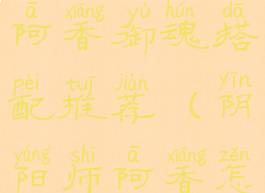 ā xiāng yù hún dā
阿香御魂搭
pèi tuī jiàn yīn
配推荐（阴
yáng shī ā xiāng zěn
阳师阿香怎